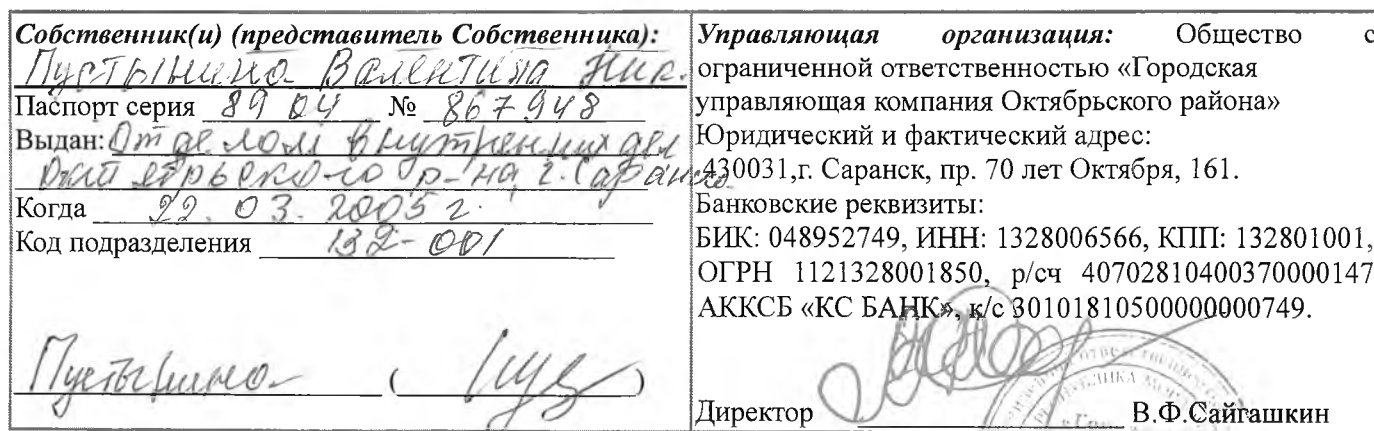 Собственник(и) (представитель Собственника):
Пустынина Валентина Ник.
Паспорт серия 89 04 № 867948
Выдан: Отделом внутренних дел
Октябрьского р-на г. Саранска
Когда 22.03.2005 г.
Код подразделения 132-001
Пустынина ( )
Управляющая организация: Общество с
ограниченной ответственностью «Городская
управляющая компания Октябрьского района»
Юридический и фактический адрес:
430031,г. Саранск, пр. 70 лет Октября, 161.
Банковские реквизиты:
БИК: 048952749, ИНН: 1328006566, КПП: 132801001,
ОГРН 1121328001850, р/сч 40702810400370000147
АККСБ «КС БАНК», к/с 30101810500000000749.
Директор В.Ф.Сайгашкин